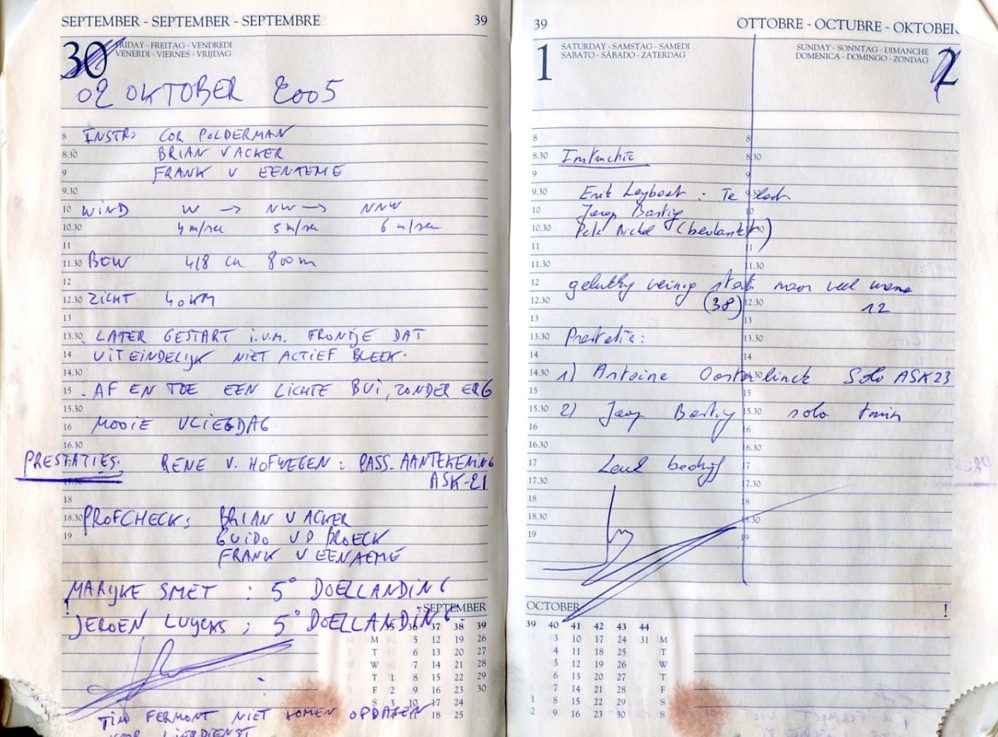 SEPTEMBER - SEPTEMBER - SEPTEMBRE 39
30 FRIDAY - FREITAG - VENDREDI
VENERDI - VIERNES - VRIJDAG
02 OKTOBER 2005
8 INSTR: COR POLDERMAN
8.30 BRIAN V ACKER
9 FRANK V EENAEME
9.30
10 WIND W → NW → NNW
10.30 4 m/sec 5 m/sec 6 m/sec
11
11.30 BEW 4/8 cu 800m
12
12.30 ZICHT 40KM
13
13.30 LATER GESTART i.v.m. FRONTJE DAT
14 UITEINDELIJK NIET ACTIEF BLEEK.
14.30
15 . AF EN TOE EEN LICHTE BUI, ZONDER ERG
15.30
16 MOOIE VLIEGDAG
16.30
PRESTATIES: RENE V. HOFWEGEN: PASS. AANTEKENING
ASK-21
18
18.30 PROFCHECK: BRIAN V ACKER
19 GUIDO VD BROECK
FRANK V EENAEME
MARIJKE SMET : 5° DOELLANDING
JEROEN LUYCKS ; 5° DOELLANDING
! SEPTEMBER
35 36 37 38 39
M 5 12 19 26
T 6 13 20 27
W 7 14 21 28
T 1 8 15 22 29
F 2 9 16 23 30
S 3 10 17 24
18 25
TIM FERMONT NIET KOMEN OPDAGEN
VOOR LIERDIENST
39 OTTOBRE - OCTUBRE - OKTOBER
1 SATURDAY - SAMSTAG - SAMEDI
SABATO - SÁBADO - ZATERDAG
SUNDAY - SONNTAG - DIMANCHE
DOMENICA - DOMINGO - ZONDAG 2
8 8
8.30 Instructie 8.30
9
9.30 : Te
10 Jaap 10
10.30
11 11
11.30 11.30
12 weinig maar veel
12.30 (38) 12.30 12
13 13
13.30 Prestatie: 13.30
14 14
14.30 1) Antoine Oosterlinck Solo ASK23
15 15
15.30 2) Jaap solo
16 16
16.30 16.30
17 Leuk bedrijf 17
17.30 17.30
18 18
18.30 18.30
19 19
OCTOBER !
39 40 41 42 43 44
3 10 17 24 31 M
4 11 18 25 T
5 12 19 26 W
6 13 20 27 T
7 14 21 28 F
1 8 15 22 29 S
2 9 16 23 30 S